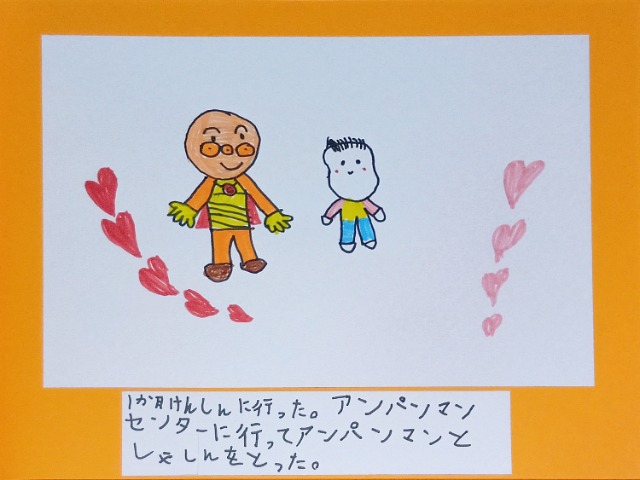 1か月けんしんに行った。アンパンマン
センターに行ってアンパンマンと
しゃしんをとった。